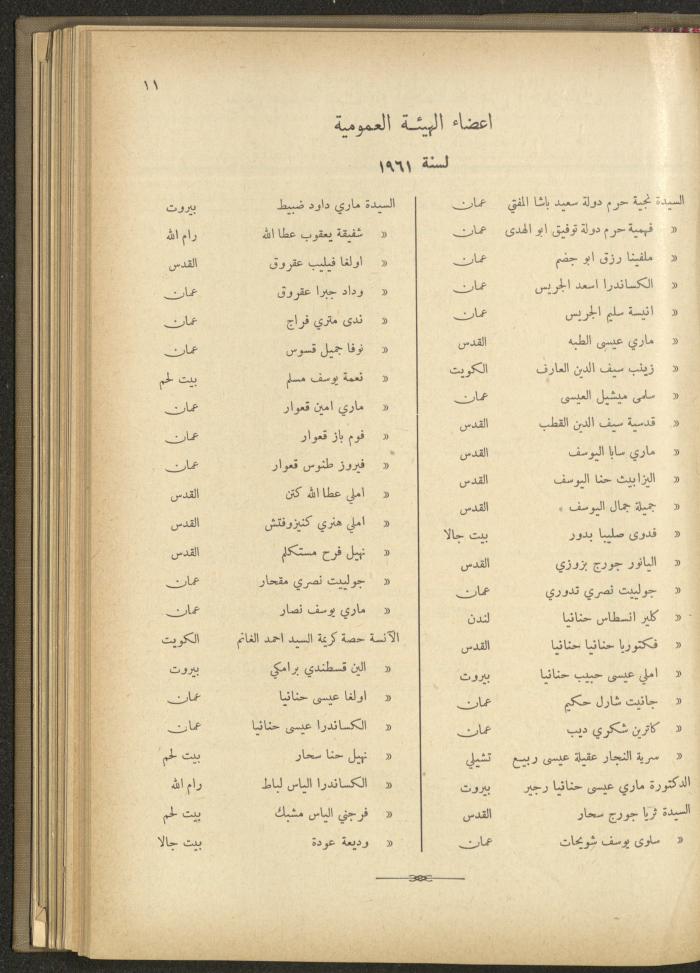 ١١
اعضاء الهيئة العمومية
لسنة ١٩٦١
السيدة نجية حرم دولة سعيد باشا المفتي عمان
« فهمية حرم دولة توفيق ابو الهدى عمان
« ملفينا رزق ابو جضم عمان
« الكساندرا اسعد الجريس عمان
« انيسة سليم الجريس عمان
« ماري عيسى الطبه القدس
« زينب سيف الدين العارف الكويت
« سلمى ميشيل العيسى عمان
« قدسية سيف الدين القطب القدس
« ماري سابا اليوسف القدس
« اليزابيث حنا اليوسف القدس
« جميلة جمال اليوسف القدس
« فدوى صليبا بدور بيت جالا
« اليانور جورج بزوزي القدس
« جولييت نصري تدوري عمان
« كلير انسطاس حنانيا لندن
« فكتوريا حنانيا حنانيا القدس
« املي عيسى حبيب حنانيا بيروت
« جانيت شارل حكيم عمان
« كاترين شكري ديب عمان
« سرية النجار عقيلة عيسى ربيع تشيلي
الدكتورة ماري عيسى حنانيا رجير بيروت
السيدة ثريا جورج سحار القدس
« سلوى يوسف شويحات عمان
السيدة ماري داود ضبيط بيروت
« شفيقة يعقوب عطا الله رام الله
« اولغا فيليب عقروق القدس
« وداد جبرا عقروق عمان
« ندى متري فراج عمان
« نوفا جميل قسوس عمان
« نعمة يوسف مسلم بيت لحم
« ماري امين قعوار عمان
« فوم باز قعوار عمان
« فيروز طنوس قعوار عمان
« املي عطا الله كتن القدس
« املي هنري كنيزوفتش القدس
« نهيل فرح مستكلم القدس
« جولييت نصري مقحار عمان
« ماري يوسف نصار عمان
الآنسة حصة كريمة السيد احمد الغانم الكويت
« الين قسطندي برامكي بيروت
« اولغا عيسى حنانيا عمان
« الكساندرا عيسى حنانيا عمان
« نهيل حنا سحار بيت لحم
« الكساندرا الياس لباط رام الله
« فرجني الياس مشبك بيت لحم
« وديعة عودة بيت جالا